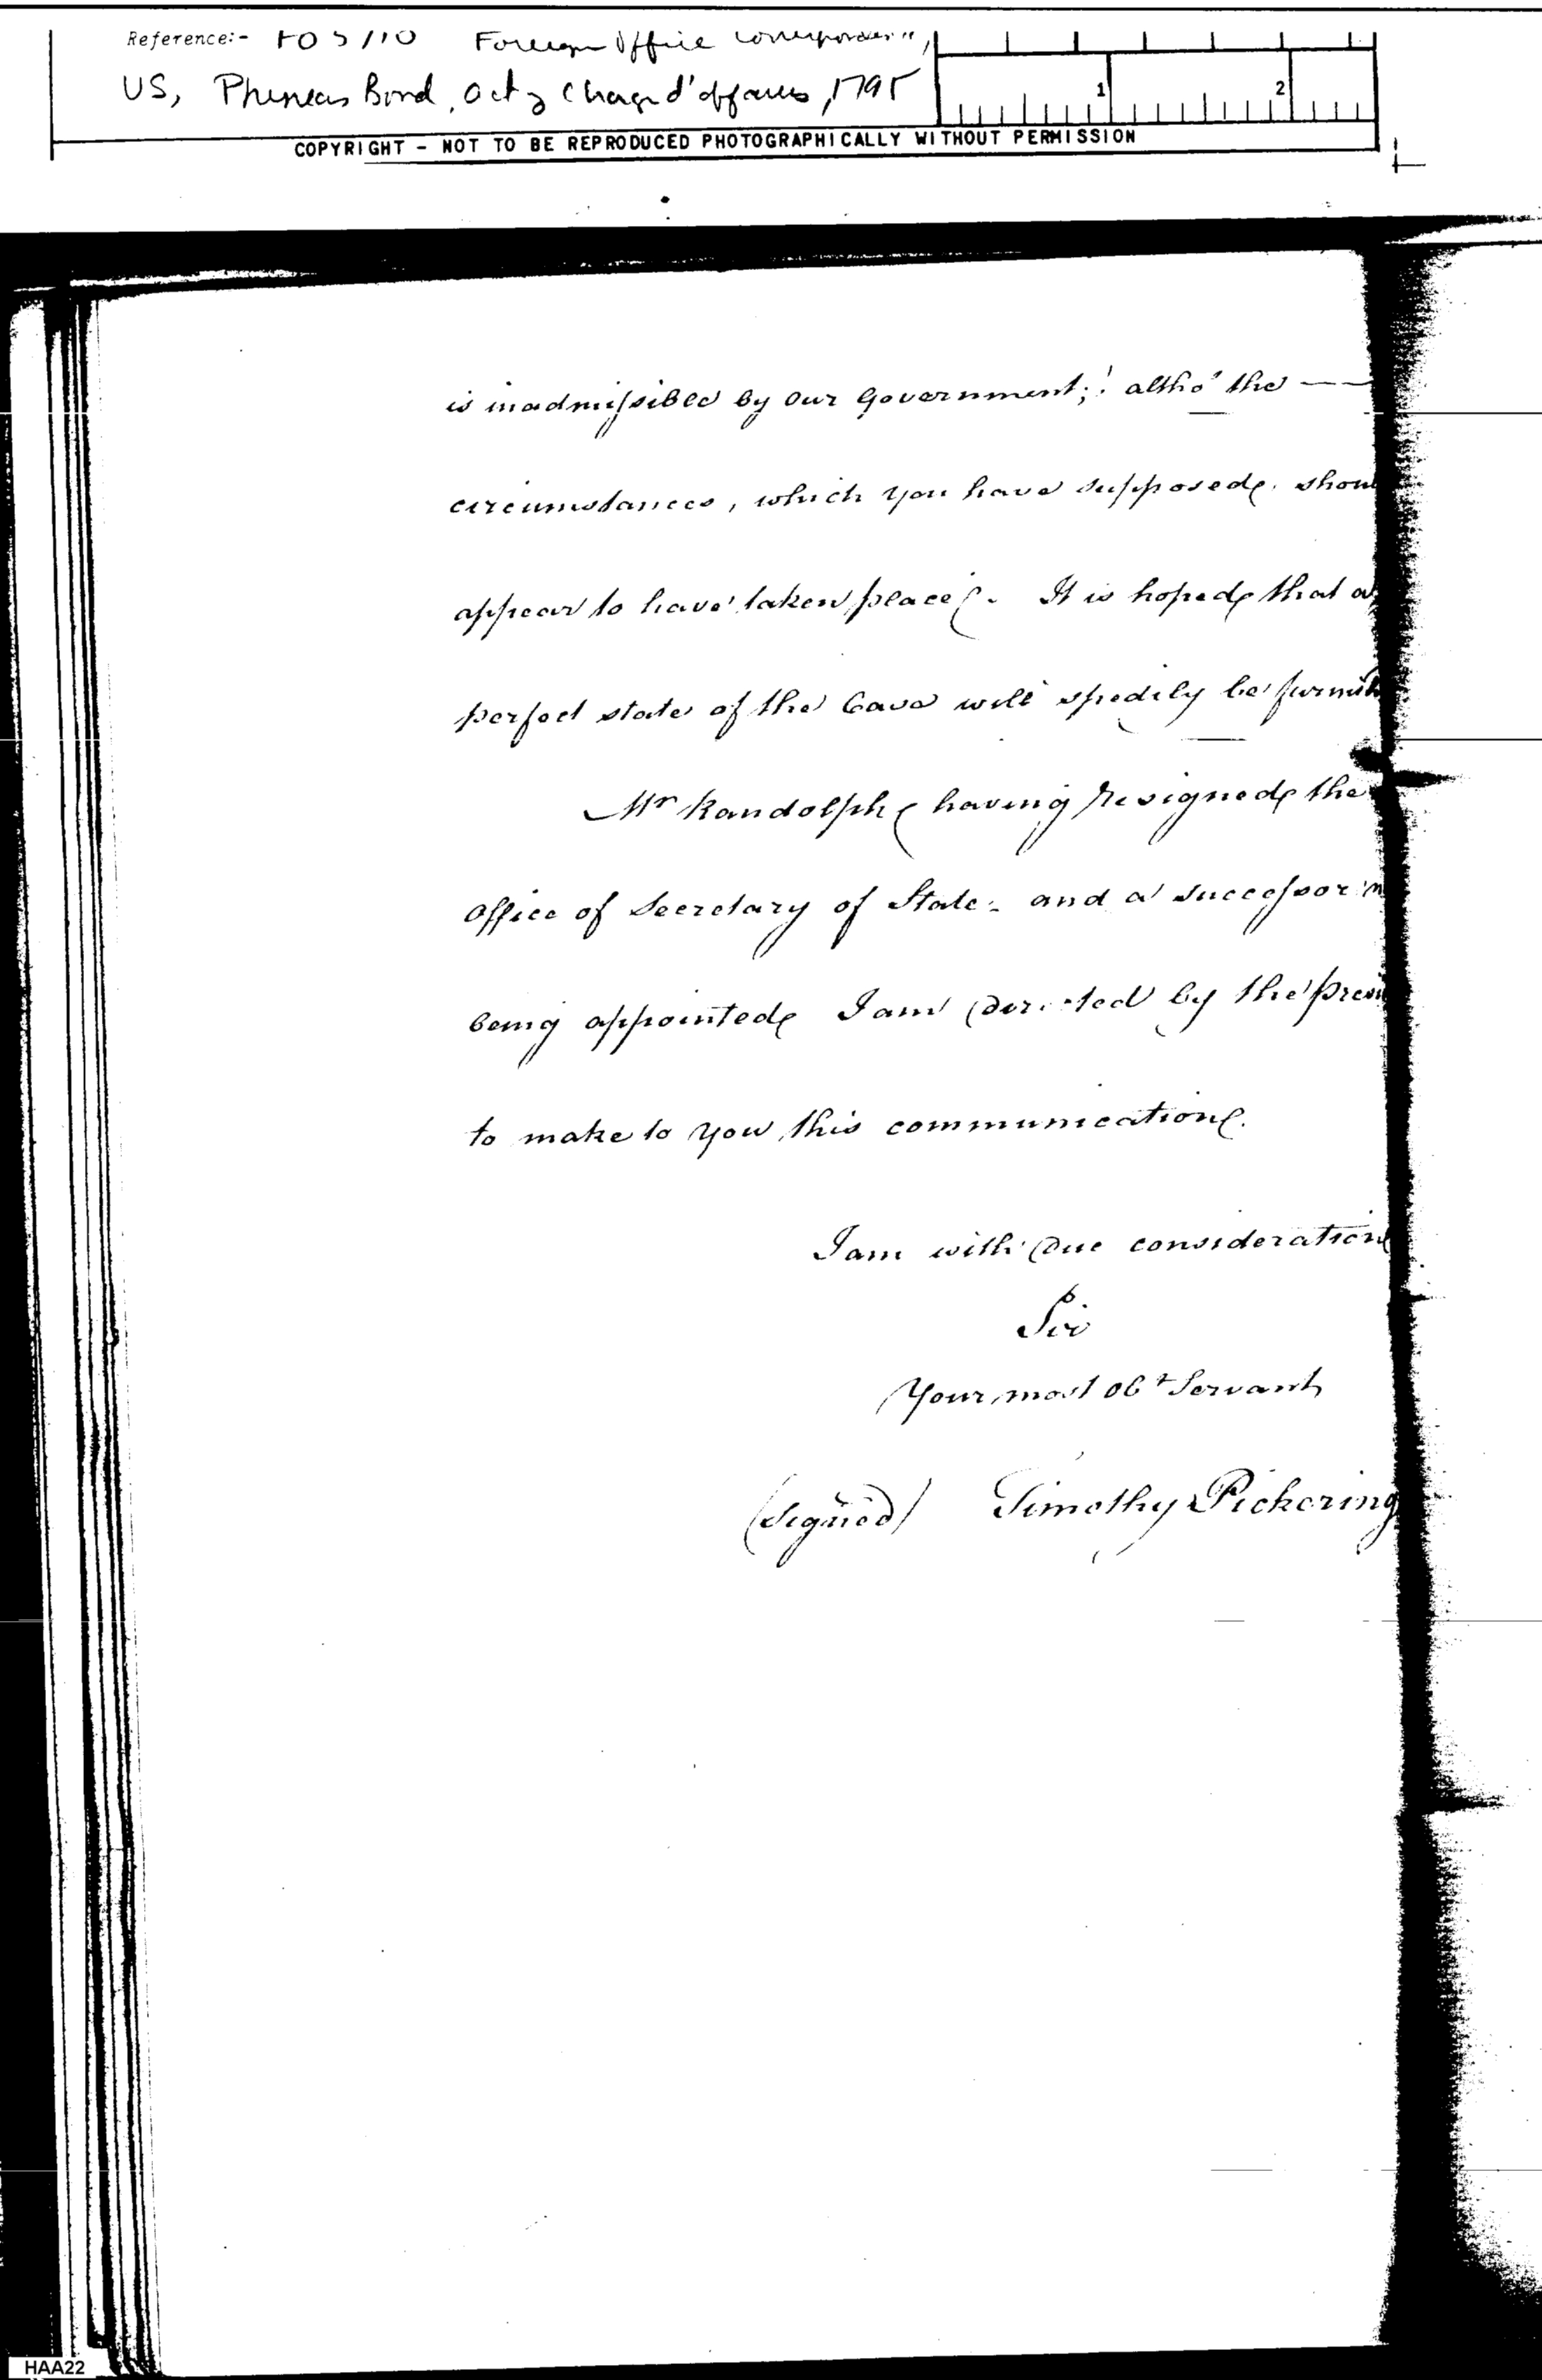 Reference:- FO 5/10 Foreign Office Correspondence,
US, Phineas Bond, Act g Chargé d'affaires, 1795
1 2
COPYRIGHT - NOT TO BE REPRODUCED PHOTOGRAPHICALLY WITHOUT PERMISSION
is inadmissible by our Government; altho' the —
circumstances, which you have supposed. shoul
appear to have taken place. It is hoped that a
perfect state of the Case will spedily be furnish
Mr Randolph having resigned the
Office of Secretary of State - and a successor n
being appointed I am directed by the Presi
to make to you this communication.
I am with due consideration
Sir
Your most obt Servant
(signed) Timothy Pickering
HAA22